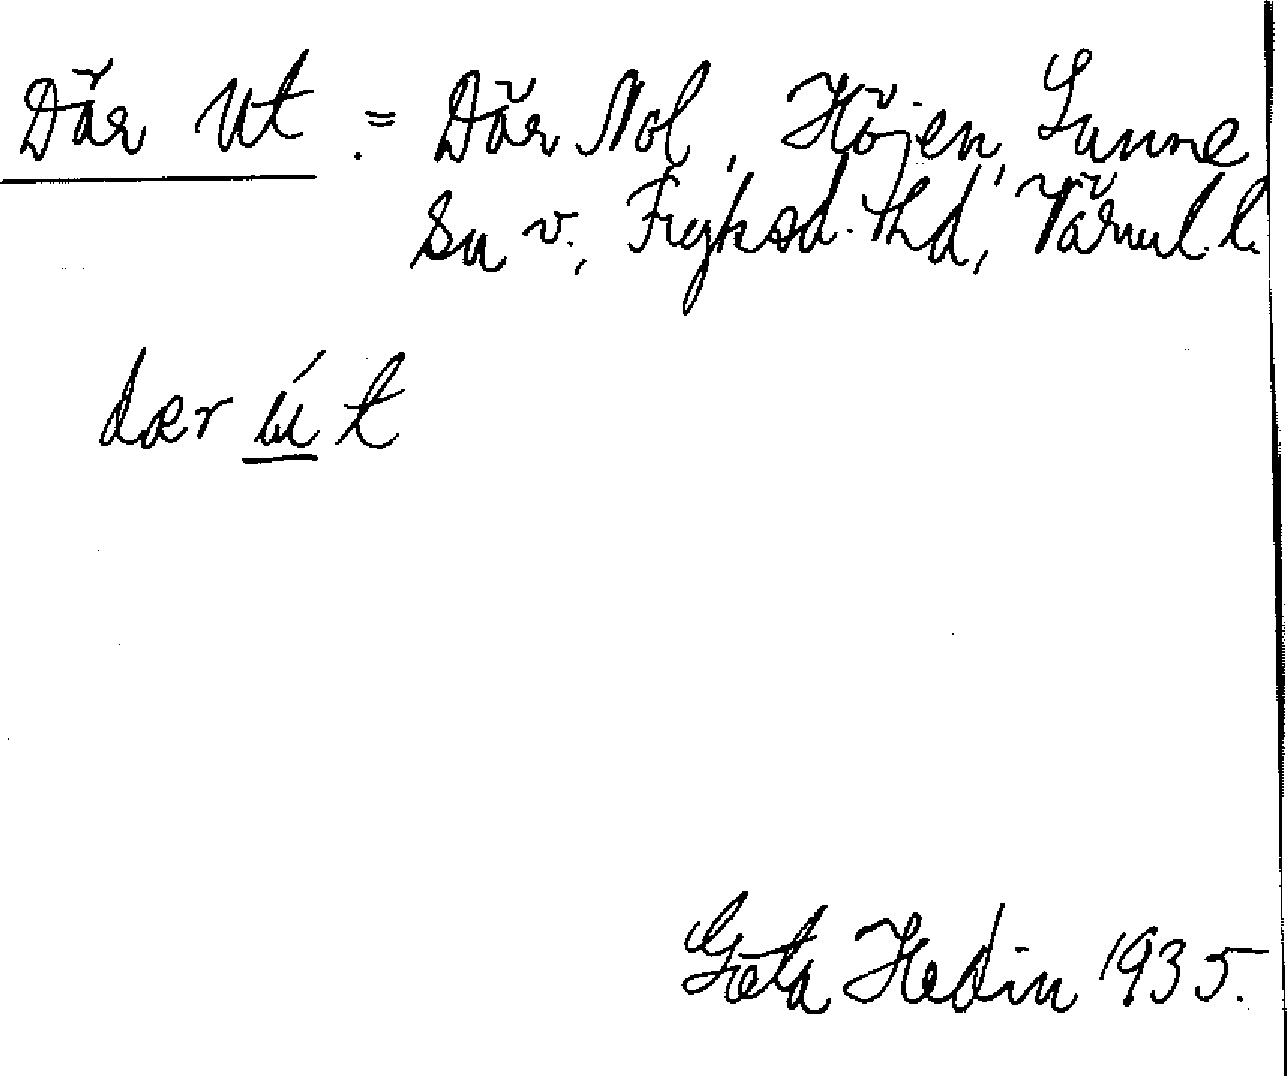 Där Ut. = Där Nol, Höjen, Sunne
sn v., Fryksd. hd, Värml. l.
dær ú t
Göta Hedin 1935.